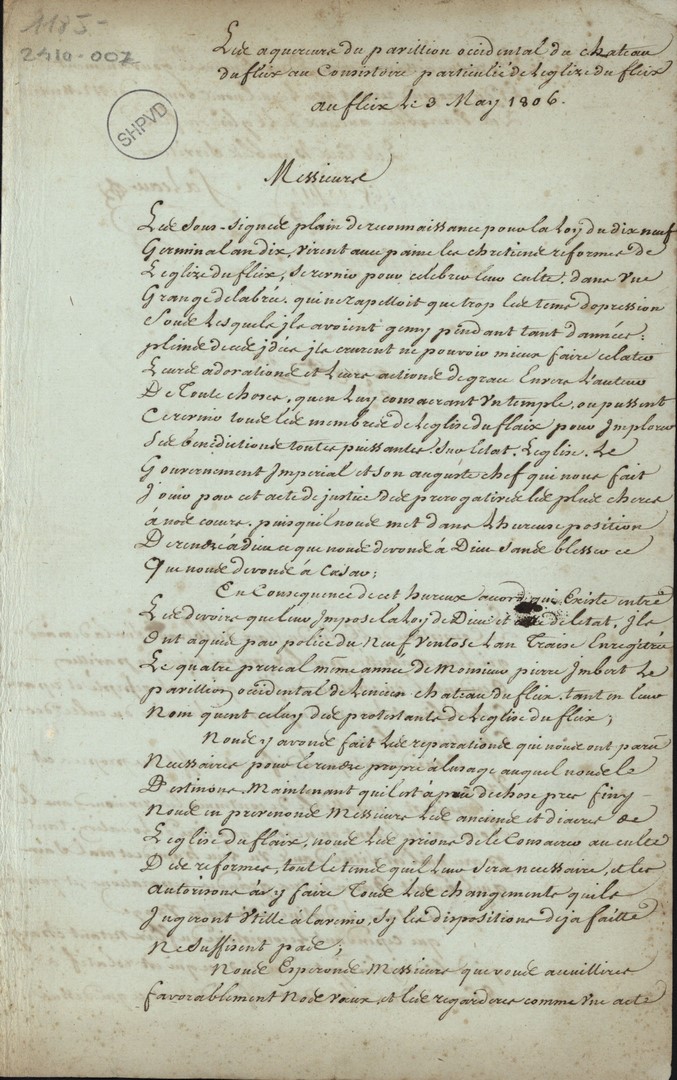 1185-
2410-007
SHPVD
Les aquereurs du pavillion occidental du chateau
du fleix au Consistoire particulié de Leglize du fleix
au fleix Le 3 May 1806.
Messieurs
Les sous-signés plain de reconnaissance pour la Loy du dix neuf
Germinal an dix, virent avec paine les chretiens reformés de
Leglize du fleix, se reunir pour celebrer leur culte dans une
Grange delabrée qui ne rapelloit que trop les tems dopression
Sous Lesquels jls avoient gemy pendant tant dannées;
pleins de ces jdées jls crurent ne pouvoir mieux faire eclater
Leurs adorations et Leurs actions de grace Envers L'auteur
De Toute choses, quen Luy consacrant un temple, ou pussent
Ce reunir tous les membres de Leglise du flaix pour Implorer
Ses benedictions toutes puissantes Sur Letat, Leglise, Le
Gouvernement Imperial et son auguste chef qui nous fait
Jouir par cet acte de justice des prerogatives les plus cheres
à nos cœurs, puisquil nous met dans Lhureuse position
De rendre à dieu ce que nous devons à Dieu sans blesser ce
Que nous devons à Cesar;
En Consequence de cet hureux acord qui Existe entre
Les devoirs que leur Impose la Loy de Dieu et de letat, Jls
Ont aquis par police du Neuf Ventose Lan Traise Enregistrée
Le quatre prereal même année de Monsieur pierre Imbert Le
pavillion occidental de Lencien chateau du fleix, tant en leur
Nom quent celuy des protestants de Leglise du fleix;
Nous y avons fait Les reparations qui nous ont paru
Necessaires pour le rendre propre à lusage auquel nous le
Destinons, Maintenant quil est à peu de chose pres finy
Nous en prevenons Messieurs Les anciens et diacres de
L'eglise du flaix, nous Les prions de le Consacrer au culte
Des reformés, tout le tems quil Leur sera necessaire, et les
autorisons à y faire Tous Les changements quils
Jugeront Utille à lavenir, sy les dispositions deja faitte
Ne suffisent pas;
Nous Esperons Messieurs que vous acuillires
favorablement Nos vœux, et les regarderes comme une acte